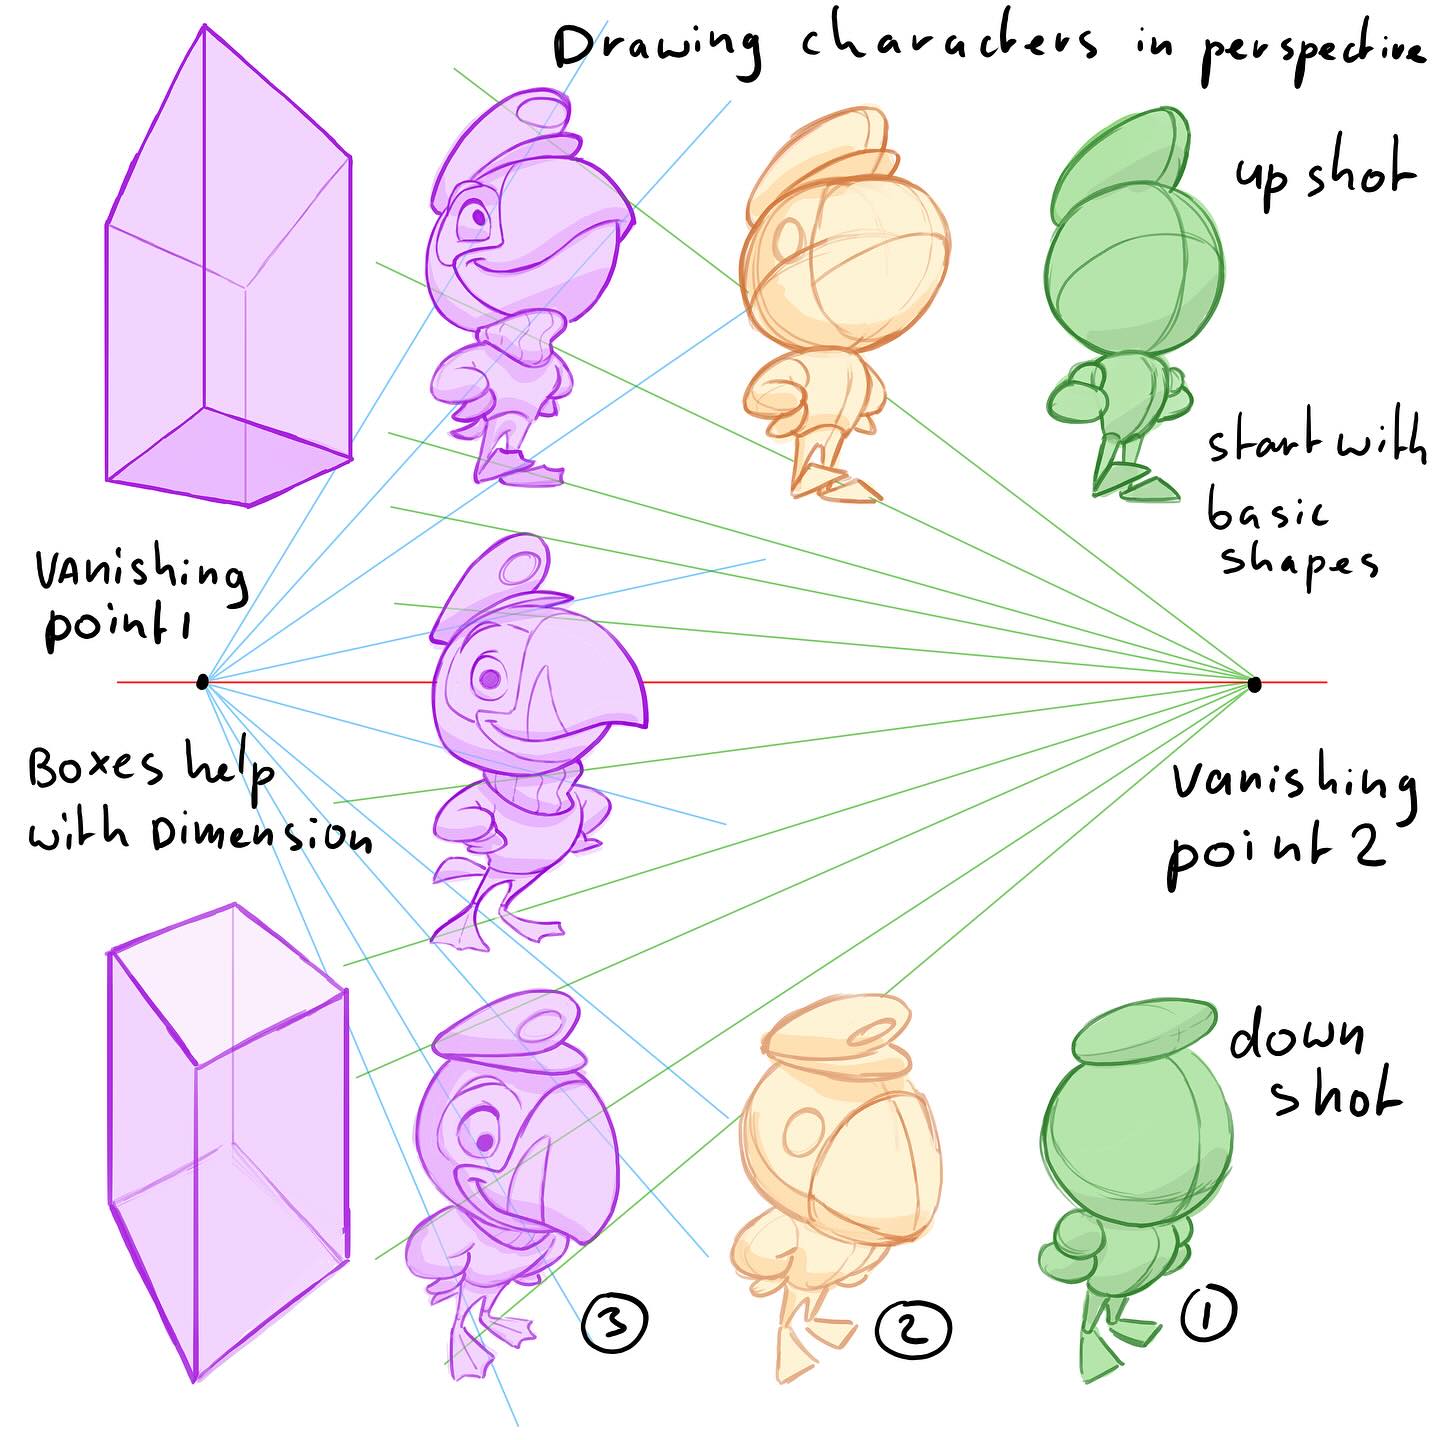 Drawing characters in perspective
up shot
start with
basic
shapes
Vanishing
point 1
Boxes help
with Dimension
Vanishing
point 2
down
shot
3
2
1